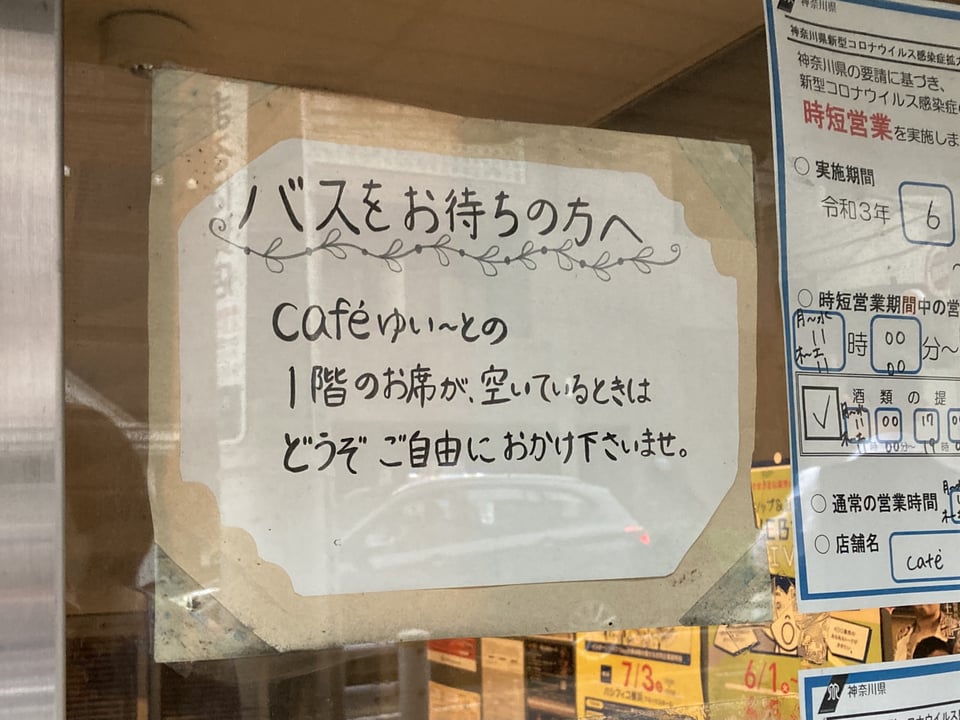 バスをお待ちの方へ
caféゆい〜との
1階のお席が、空いているときは
どうぞ ご自由に おかけ下さいませ。
神奈川県
神奈川県新型コロナウイルス感染症拡大
神奈川県の要請に基づき、
新型コロナウイルス感染症
時短営業を実施しま
○ 実施期間
令和3年 6
○ 時短営業期間中の営
時 00 分〜
酒類の提
00 17
○ 通常の営業時間
○ 店舗名 café
7/3
パシフィコ横浜
6/1
神奈川県